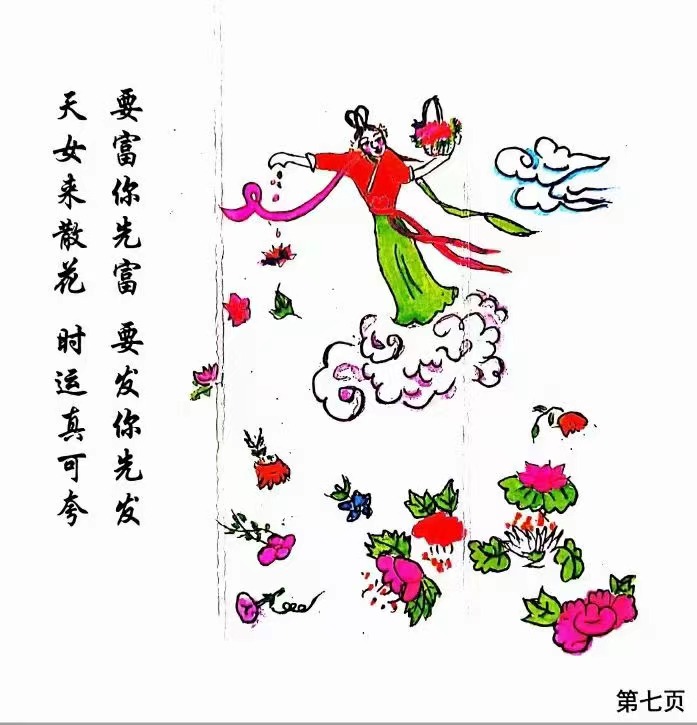 要富你先富 要发你先发
天女来散花 时运真可夸
第七页